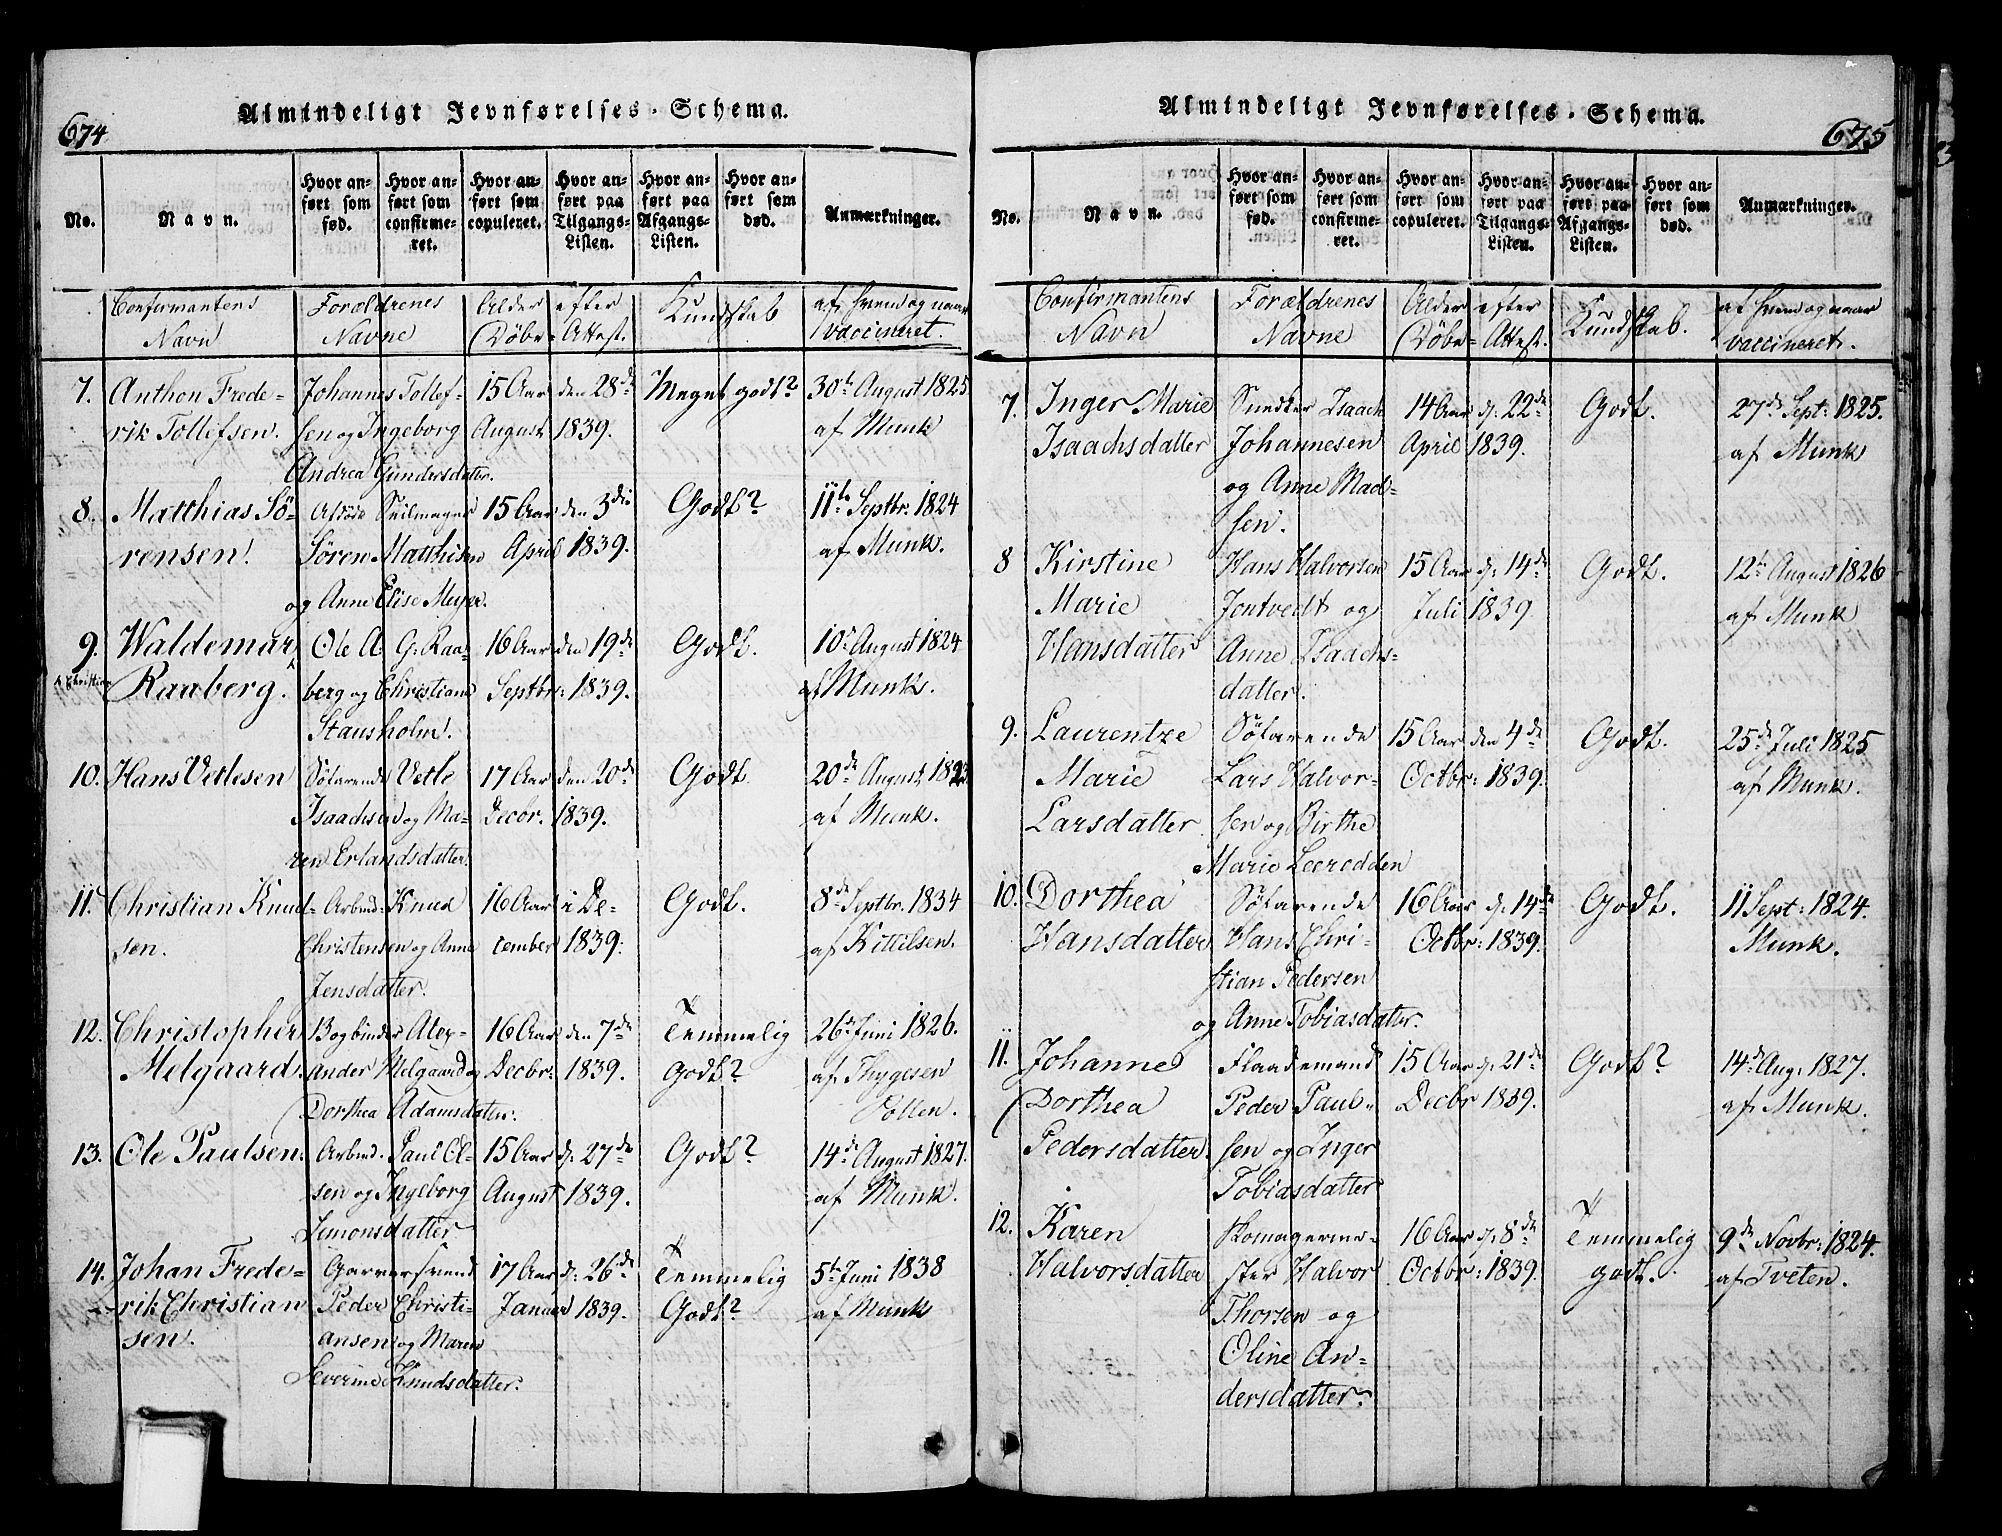 674
Almindeligt Jevnførelses-Schema.
No.
Navn.
Hvor anført som fød.
Hvor anført som confirmeret.
Hvor anført som copuleret.
Hvor anført paa Tilgangs-Listen.
Hvor anført paa Afgangs-Listen.
Hvor anført som død.
Anmærkninger.
Confirmantens Navn
Forældrenes Navne
Alder efter Døbe-Attest.
Kundskab
af hvem og naar vaccineret.
7. Anthon Frede- Johannes Tollef- 15 Aar den 28de Meget godt? 30te August 1825
rik Tollefsen. sen og Ingeborg August 1839. af Munk
Andrea Gundersdatter.
8. Matthias Sö- Afdöde Seilmager 15 Aar den 3die Godt? 11te Septbr. 1824
rensen! Sören Matthisen April 1839. af Munk.
og Anne Elise Meyer.
9. Waldemar Ole A. G. Raa- 16 Aar den 19de Godt. 10de August 1824
Christian Raaberg. berg og Christiane Septbr: 1839. af Munk.
Stausholm.
10. Hans Vetlesen Söfarende Vetle 17 Aar den 20de Godt 20de August 1823
Isaachsen og Ma- Decbr. 1839. af Munk.
ren Erlandsdatter.
11. Christian Knud- Arbmd: Knud 16 Aar i De- Godt. 8de Septbr. 1834
sen. Christensen og Anne cember 1839: af Kittilsen.
Jensdatter.
12. Christopher Bogbinder Alex- 16 Aar den 7de Temmelig 26de Juni 1826.
Melgaard. ander Melgaard og Decbr: 1839. godt? af Thygesen
Dorthea Adamsdatter. Potten.
13. Ole Paulsen. Arbmd. Paul Ol- 15 Aar d: 27de Godt? 14de August 1827.
sen og Ingeborg August 1839. af Munk.
Simonsdatter
14. Johan Frede- Garversvend 17 Aar d: 26de Temmelig 5te Juni 1838
rik Christian Peder Christi- Januar 1839. Godt? af Munk
sen. ansen og Maren
Severine Knudsdatter.
675
Almindeligt Jevnførelses-Schema.
No.
Navn.
Hvor anført som fød.
Hvor anført som confirmeret.
Hvor anført som copuleret.
Hvor anført paa Tilgangs-Listen.
Hvor anført paa Afgangs-Listen.
Hvor anført som død.
Anmærkninger.
Confirmantens Navn
Forældrenes Navne
Alder efter Döbe-Attest.
Kundskab.
af hvem og naar vaccineret.
7. Inger Marie Snedker Isaach 14 Aar d: 22de Godt. 27de Sept: 1825.
Isaachsdatter Johannesen April 1839. af Munk
og Anne Mad-
sen.
8 Kirstine Hans Halvorsen 15 Aar d: 14de Godt. 12te August 1826
Marie Jontvedt og Juli 1839. af Munk
Hansdatter Anne Isaachs-
datter.
9. Laurentze Söfarende 15 Aar den 4de Godt. 25de Juli 1825
Marie Lars Halvor- Octbr: 1839. af Munk.
Larsdatter. sen og Birthe
Marie Leerodden
10. Dorthea Söfarende 16 Aar d: 14de Godt. 11 Sept: 1824.
Hansdatter Hans Chri- Octbr: 1839. Munk.
stian Pedersen
og Anne Tobiasdatter.
11. Johanne Flaademand 15 Aar d: 21de Godt? 14d. Aug: 1827.
Dorthea Peder Paul- Decbr 1839. af Munk.
Pedersdatter. sen og Inger
Tobiasdatter
12. Karen Skomagerme- 16 Aar d: 8de Temmelig 9de Novbr: 1824.
Halvorsdatter ster Halvor Octbr: 1839. godt. af Tveten.
Thorsen og
Oline An-
dersdatter.